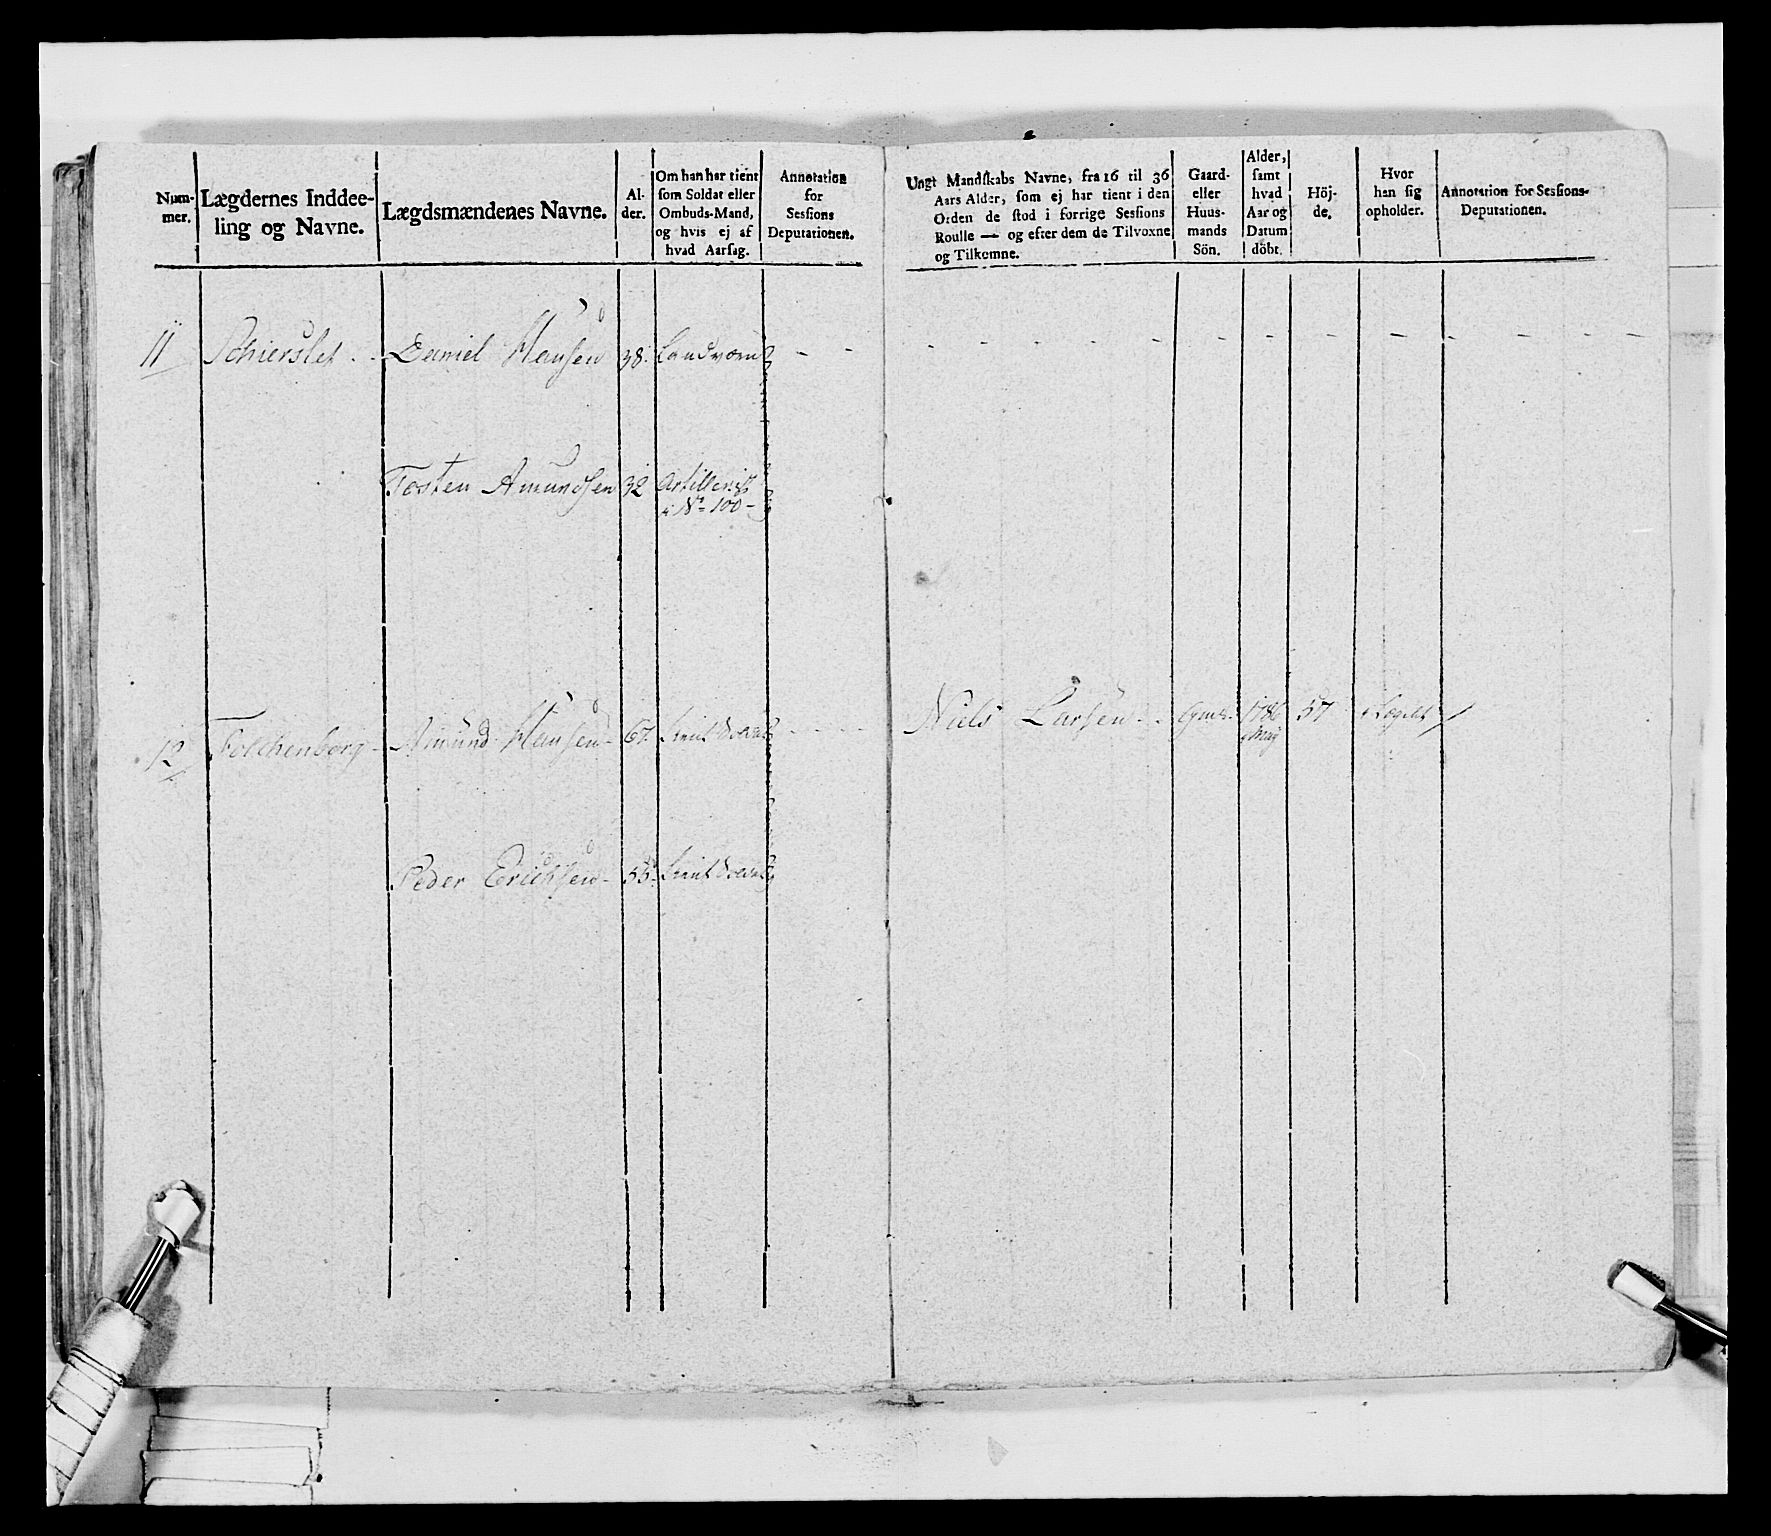 Num-
mer.
Lægdernes Inddee-
ling og Navne.
Lægdsmændenes Navne.
Al-
der.
Om han har tient
som Soldat eller
Ombuds-Mand,
og hvis ej af
hvad Aarsag.
Annotation
for
Sessions
Deputationen.
Ungt Mandskabs Navne, fra 16 til 36
Aars Alder, som ej har tient i den
Orden de stod i forrige Sessions
Roulle — og efter dem de Tilvoxne
og Tilkomne.
Gaard-
eller
Huus-
mands
Sön.
Alder,
samt
hvad
Aar og
Datum
döbt.
Höj-
de.
Hvor
han sig
opholder.
Annotation for Sessions-
Deputationen.
11 Schierslet - Daniel Hansen 38. Landværn - - - - - - - - - - - - - -
Tosten Amundsen 32 Artillerist
i No 100 -
12 Folchenborg - Amund Hansen - 67. - - - - Niels Larsen - - 1786 57 i Lægdet
May
Peder Erichsen - 55.